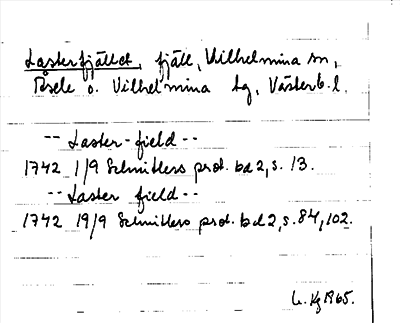 Lasterfjället, fjäll, Vilhelmina sn,
Åsele o. Vilhelmina tg, Västerb. l.
-- Laster-field --
1742 1/9 Schnitlers prot. bd 2, s. 13.
-- Laster field --
1742 19/9 Schnitlers prot. bd 2, s. 84, 102.
L. Kg 1965.